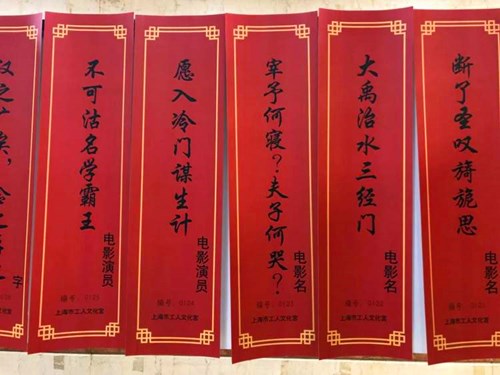 断了圣叹旖旎思
电影名
大禹治水三经门
电影名
编号：
上海市工人文化宫
宰予何寝？夫子何哭？
电影名
编号：
上海市工人文化宫
愿入冷门谋生计
电影演员
编号：
上海市工人文化宫
不可沽名学霸王
电影演员
编号：
上海市工人文化宫
汉之广矣，
字